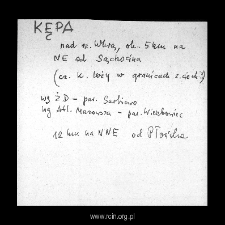 KĘPA
nad rz. Wkrą, ok. 5 km na
NE od Sochocina
(cz. K. leży w granicach z.ciech.)
wg ŻD – par. Sarbiewo
wg Atl. Mazowsza – par.
12 km na NNE od Płońska
www.rcin.org.pl